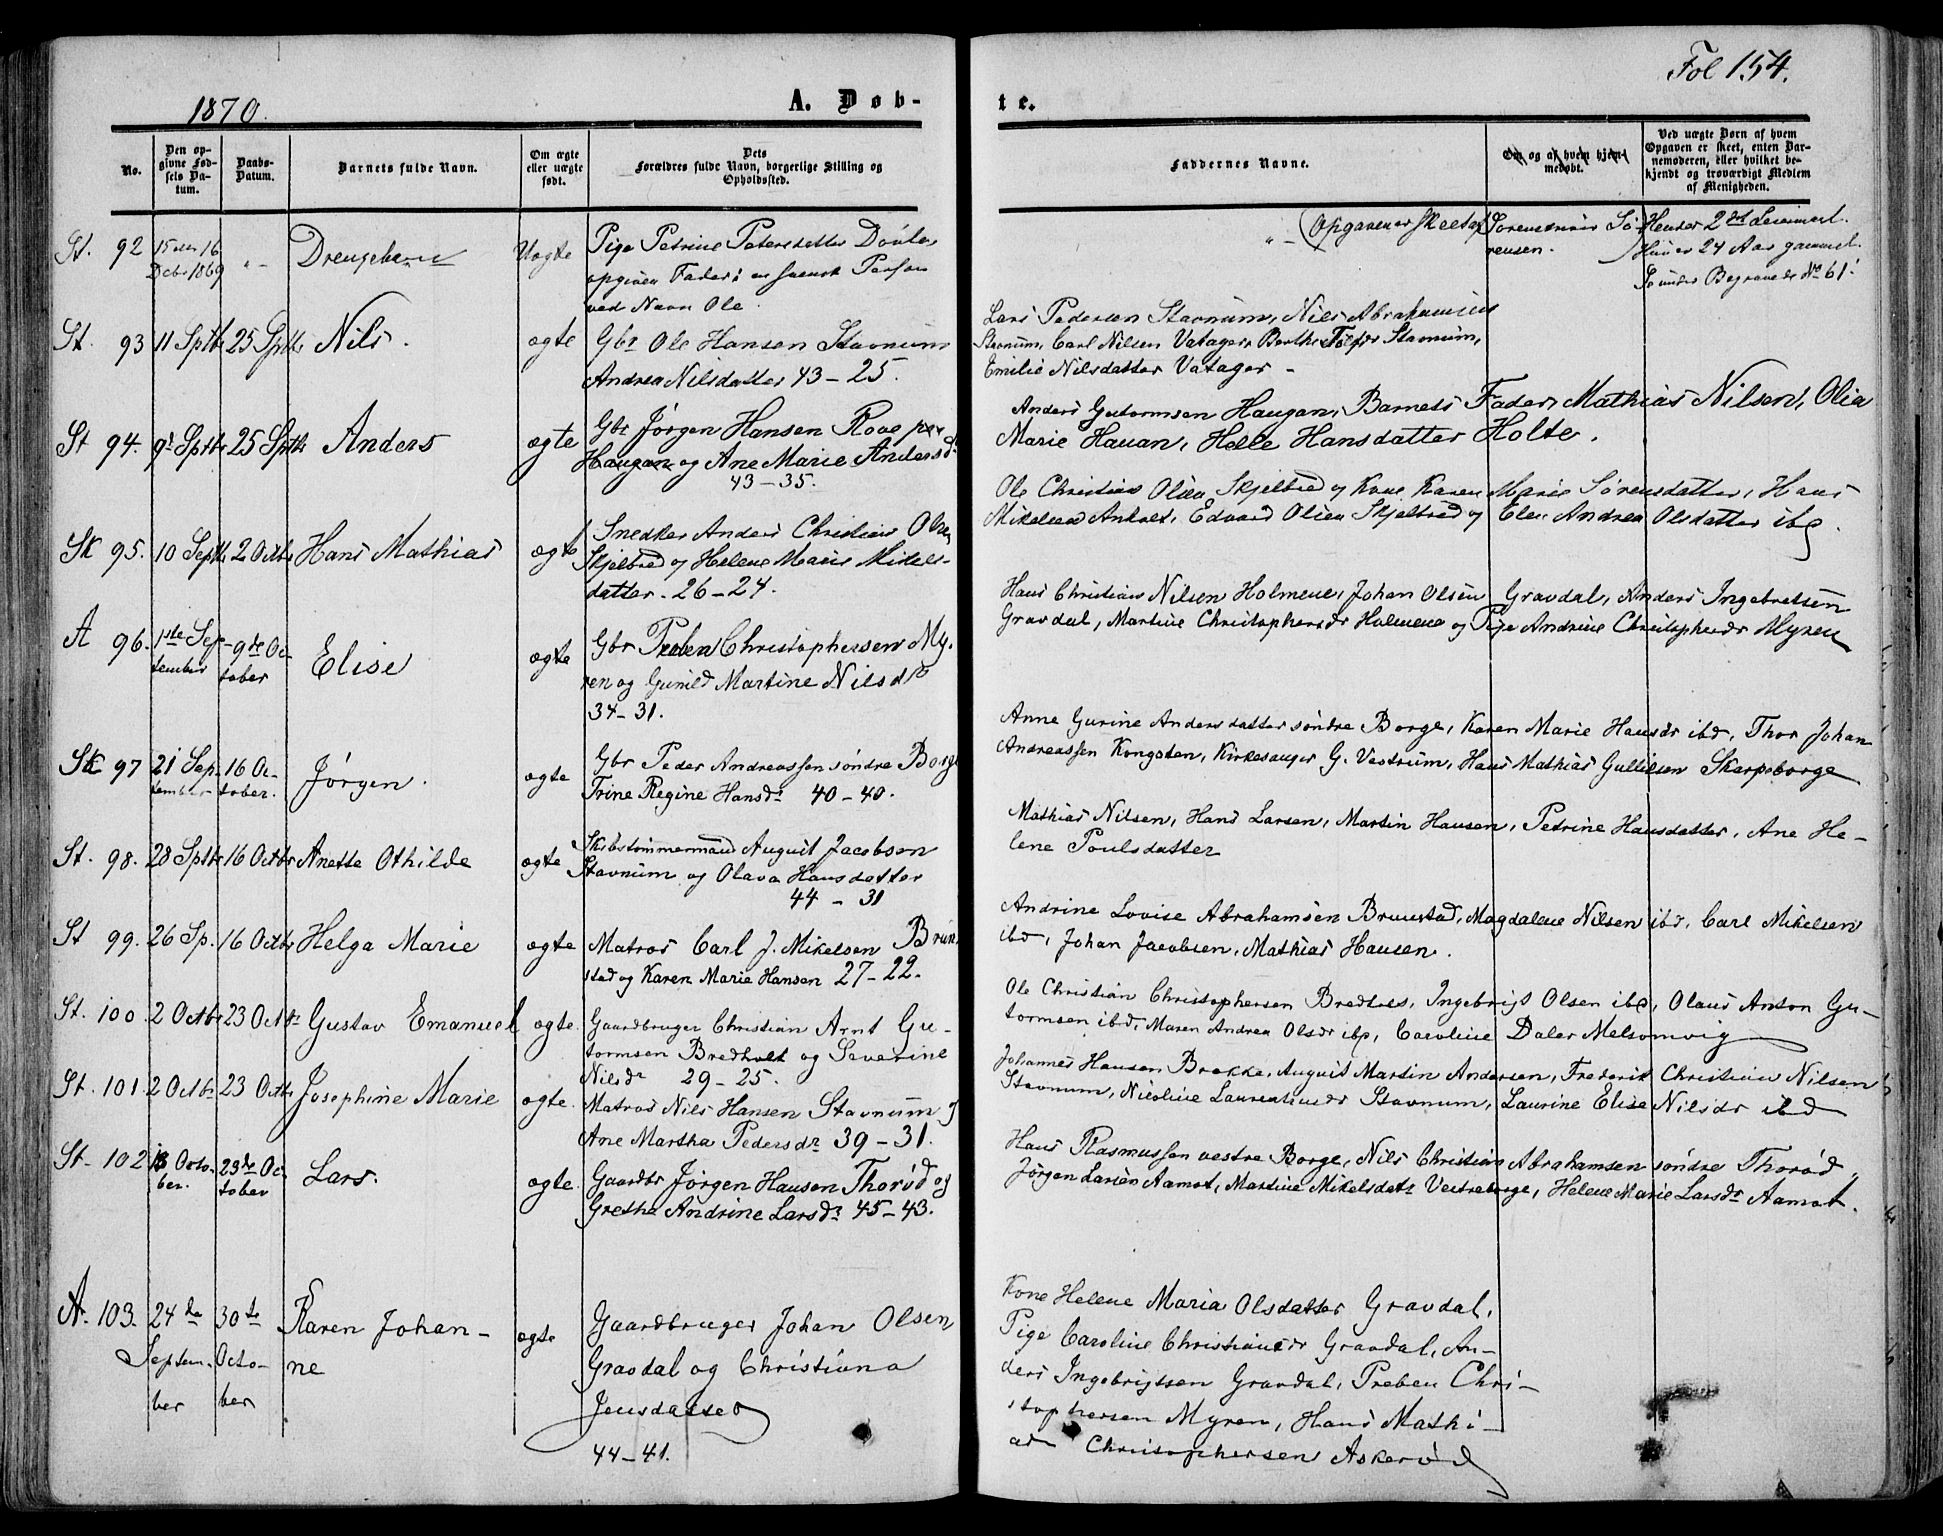 1870.
A. Døb-
te.
Fol 154.
No.
Den op-
givne Fød-
sels Da-
tum.
Daabs-
Datum.
Barnets fulde Navn.
Om ægte
eller uægte
født.
Dets
Forældres fulde Navn, borgerlige Stilling og
Opholdssted.
Faddernes Navne.
Om og af hvem hjem-
medøbt.
Ved uægte Børn af hvem
Opgaven er skeet, enten Bar-
nemoderen, eller hvilket be-
kjendt og troværdigt Medlem
af Menigheden.
St. 92 15 16 Decbr 1869 „ Drengebarn Uægte Pige Petrine Petersdatter
opgiven Fader: en svensk Person
ved Navn Ole
Opgaven er skeet af Sørensen.
Hendes 2det Leiermaal.
Hun er 24 Aar gammel.
Se under Begravede No 61.
St. 93 11 Sptb 25 Sptb Nils. ægte Gbr Ole Hansen Stavnum
Andrea Nilsdatter 43-25.
Lars Pedersen Stavnum, Nils Abrahamsen
Stavnum, Carl Nilsen Vatager, Berthe Stavnum,
Emilie Nilsdatter Vatager -
St 94. 9d Sptb 25 Sptb Anders ægte Gbr Jørgen Hansen Rove
Haugan og Ane Marie Andersdr
43-35.
Anders Gutormsen Haugan, Barnets Fader, Mathias Nilsen, Olia
Marie Hauan, Helle Hansdatter Holte.
Sk 95. 10 Septb 2 Octbr Hans Mathias ægte Snedker Anders Christian Olsen
Skjelbred og Helene Marie Mikels-
datter. 26-24.
Ole Christian Olsen Skjelbred og Kone Karen Marie Sørensdatter, Hans
Mikelsen Anholt, Edvard Olsen Skjelbred og Elen Andrea Olsdatter ibd.
A 96. 1ste Sep-
tember 9de Oc-
tober Elise ægte Gbr Preben Christophersen My-
ren og Gunild Martine Nilsdr
34-31.
Hans Christian Nilsen Holmene, Johan Olsen Gravdal, Anders Ingebretsen
Gravdal, Martine Christophersdr Holmene og Pige Andrine Christophersdr Myren
Sk 97 21 Sep-
tember 16 Oc-
tober. Jørgen. ægte Gbr Peder Andreassen søndre Borge
Trine Regine Hansdr 40-40.
Anne Gurine Andersdatter søndre Borge, Karen Marie Hansdr ibd, Thor Johan
Andreassen Kongsten, Kirkesanger G. Vestrum, Hans Mathias Gulliksen Skarpeborge
St. 98. 28 Sptbr 16 Octbr Anette Othilde ægte Skibstømmermand August Jacobsen
Stavnum og Olava Hansdatter
44-31
Mathias Nilsen, Hans Larsen, Martin Hansen, Petrine Hansdatter, Ane He-
lene Poulsdatter
St 99. 26 Sp. 16 Octbr Helga Marie ægte Matros Carl J. Mikelsen Brun
stad og Karen Marie Hansen 27-22.
Andrine Lovise Abrahamsen Brunstad, Magdalene Nilsen ibd, Carl Mikelsen
ibd, Johan Jacobsen, Mathias Hansen.
St. 100 2 Octbr 23 Octbr Gustav Emanuel ægte. Gaardbruger Christian Arnt Gu-
tormsen Bredholt og Severine
Nilsdr 29-25.
Ole Christian Christophersen Bredholt, Ingebrigt Olsen ibd, Olaus Anton Gu-
tormsen ibd, Maren Andrea Olsdr ibd, Caroline Daler Melsomvig
St. 101. 2 Octbr 23 Octbr Josephine Marie ægte. Matros Nils Hansen Stavnum og
Ane Martha Pedersdr 39-31.
Johannes Hansen Brekke, August Martin Andersen, Frederik Christian Nilsen
Stavnum, Nicoline Laurentiusdr Stavnum, Laurine Elise Nilsdr ibd
St. 102 Octo-
ber. 23de Oc-
tober Lars. ægte. Gaardbr Jørgen Hansen Thorød og
Grethe Andrine Larsdr 45-43.
Hans Rasmussen vestre Borge, Nils Christian Abrahamsen søndre Thorød,
Jørgen Larsen Aamot, Martine Mikelsdatr Vestreborge, Helene Marie Larsdr Aamot.
A. 103. 24de
Septem-
ber 30te
Octo-
ber Karen Johan-
ne ægte Gaardbruger Johan Olsen
Gravdal og Christiana
Jensdatter
44-41.
Kone Helene Maria Olsdatter Gravdal,
Pige Caroline Christiansdr Gravdal, An-
ders Ingebrigtsen Gravdal, Preben Chri-
stophersen Myren, Hans Mathi-
as Christophersen Askerød